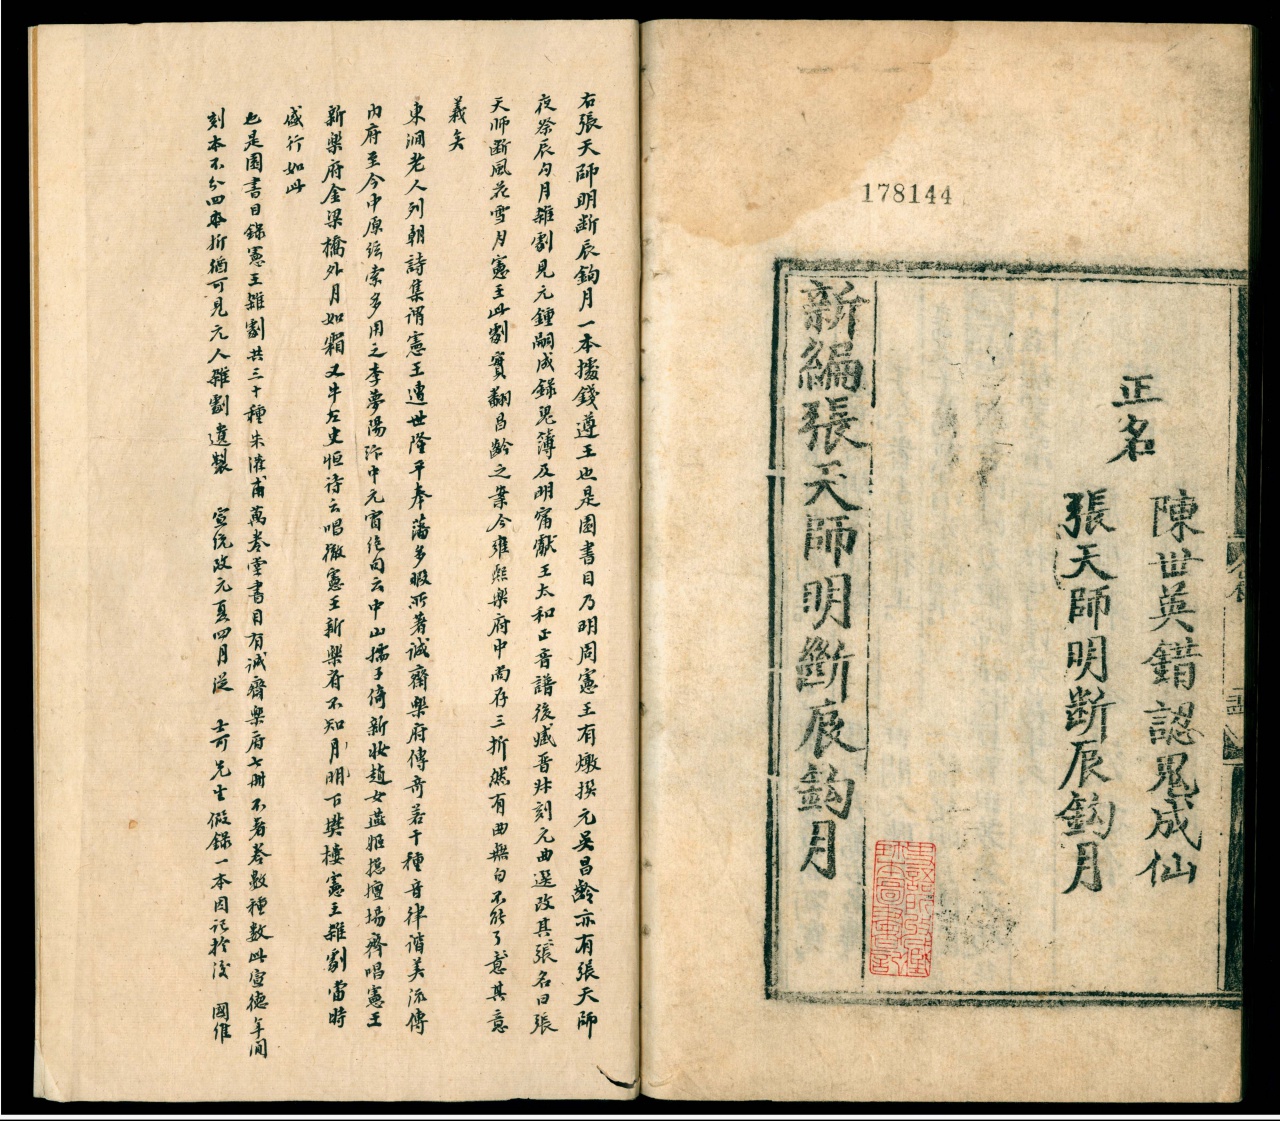 178144
正名
陳世英錯認鬼成仙
張天師明断辰鈎月
新編張天師明斷辰鈎月
史語所收藏珍本圖書記
右張天師明斷辰鈎月一本據錢遵王也是園書目乃明周憲王有燉撰元吳昌齡亦有張天師
夜祭辰勾月雜劇見元鍾嗣成錄鬼簿及明甯獻王太和正音譜後臧晉叔刻元曲選改其張名曰張
天師斷風花雪月憲王此劇實翻昌齡之案今雍熙樂府中尚存三折然有曲無白不能了意其意
義矣
東澗老人列朝詩集謂憲王遭世隆平奉藩多暇所著誠齋樂府傳奇若干種音律諧美流傳
內府至今中原絃索多用之李夢陽汴中元宵絕句云中山孺子倚新妝趙女燕姬總擅場齊唱憲王
新樂府金梁橋外月如霜又牛左史恒詩云唱徹憲王新樂府不知月明下樊樓憲王雜劇當時
盛行如此
也是園書目錄憲王雜劇共三十種朱灌甫萬卷堂書目有誠齋樂府七冊不著卷數種數此宣德年間
刻本不分四本折猶可見元人雜劇遺製 宣統改元夏四月從 士可先生假錄一本因記於後 國維